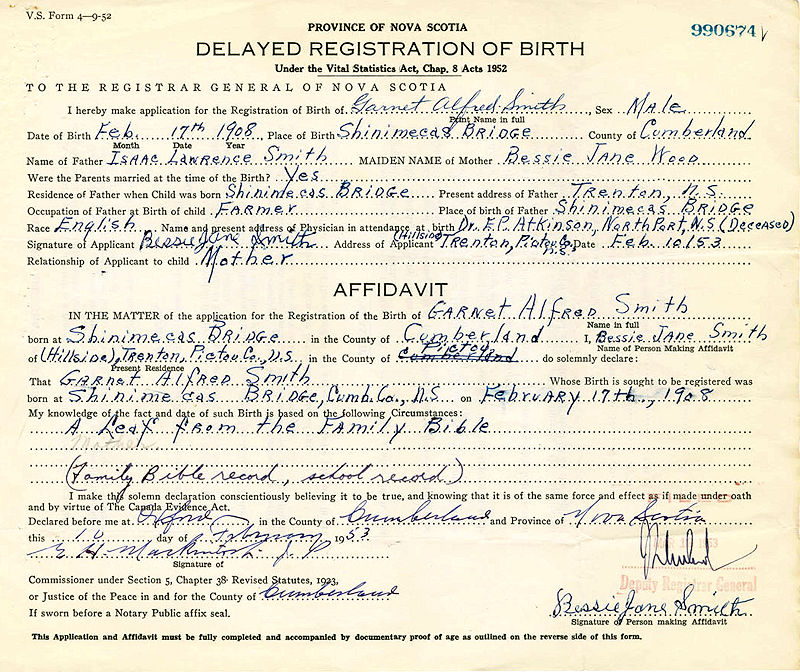 V.S. Form 4—9-52
PROVINCE OF NOVA SCOTIA
990674
DELAYED REGISTRATION OF BIRTH
Under the Vital Statistics Act, Chap. 8 Acts 1952
TO THE REGISTRAR GENERAL OF NOVA SCOTIA
I hereby make application for the Registration of Birth of Garnet Alfred Smith, Sex Male
Print Name in full
Date of Birth Feb. 17th 1908, Place of Birth Shinimecas BRIDGE County of Cumberland
Month Date Year
Name of Father ISAAC LAWRENCE Smith MAIDEN NAME of Mother Bessie Jane Wood
Were the Parents married at the time of the Birth? Yes
Residence of Father when Child was born Shinimecas BRIDGE Present address of Father Trenton, N.S.
Occupation of Father at Birth of child FARMER Place of birth of Father Shinimecas BRIDGE
Race English Name and present address of Physician in attendance at birth Dr. E.P. Atkinson, North Port, N.S (Deceased)
Signature of Applicant Bessie Jane Smith Address of Applicant (Hillside) Trenton, Pictou Co. N.S. Date Feb. 10/53
Relationship of Applicant to child Mother
AFFIDAVIT
IN THE MATTER of the application for the Registration of the Birth of GARNET Alfred Smith
Name in full
born at Shinimecas BRIDGE in the County of Cumberland I, Bessie Jane Smith
Name of Person Making Affidavit
of (Hillside), Trenton, Pictou Co., N.S in the County of Pictou Cumberland do solemnly declare:
Present Residence
That GARNET Alfred Smith Whose Birth is sought to be registered was
born at Shinimecas BRIDGE, Cumb. Co., N.S. on February 17th., 1908
My knowledge of the fact and date of such Birth is based on the following Circumstances:
A Leaf from the Family Bible
Mother
(Family Bible record, school record)
I make this solemn declaration conscientiously believing it to be true, and knowing that it is of the same force and effect as if made under oath
and by virtue of The Canada Evidence Act.
Declared before me at Oxford, in the County of Cumberland and Province of Nova Scotia
this 10 day of February 1953
Signature of
Commissioner under Section 5, Chapter 38 Revised Statutes, 1923,
or Justice of the Peace in and for the County of Cumberland
If sworn before a Notary Public affix seal.
Deputy Registrar General
Bessie Jane Smith
Signature of Person making Affidavit
This Application and Affidavit must be fully completed and accompanied by documentary proof of age as outlined on the reverse side of this form.